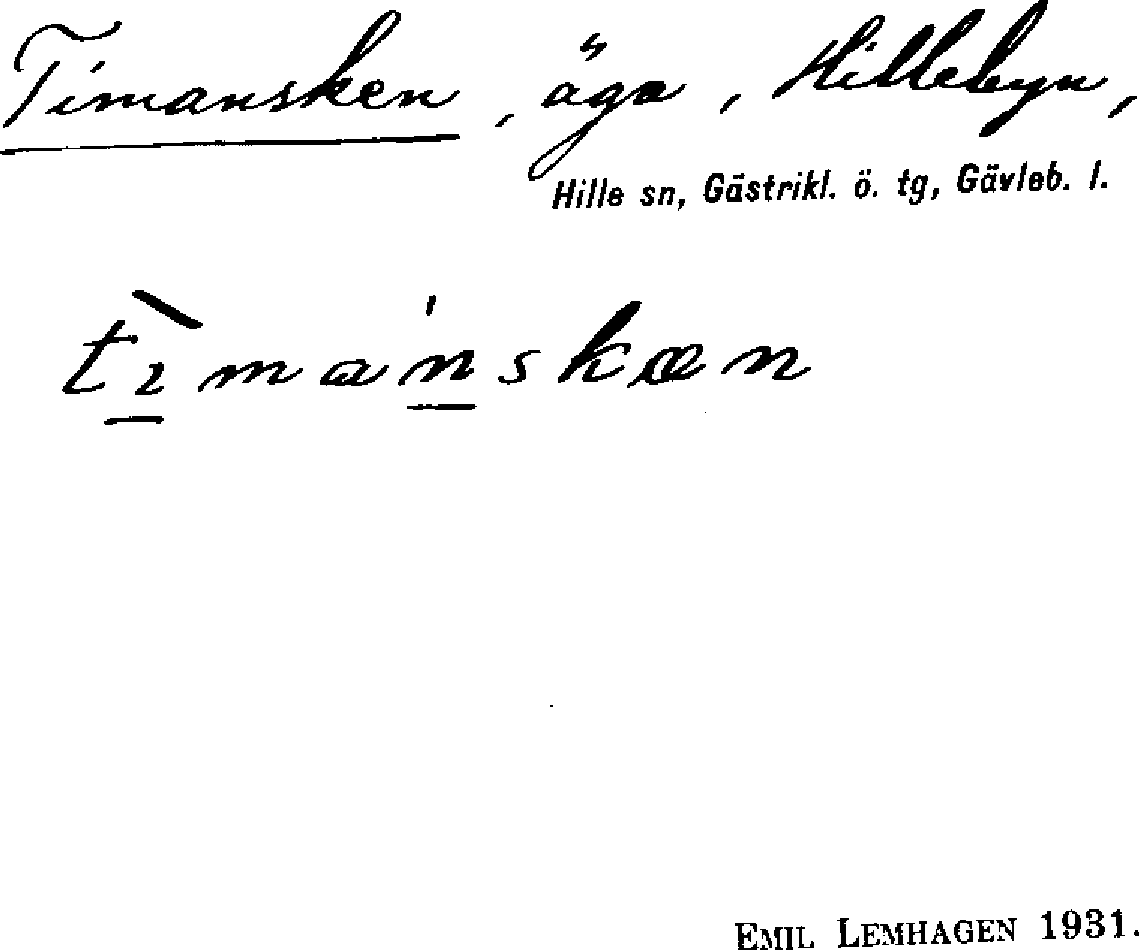 Timansken, äga, Hillebyn,
Hille sn, Gästrikl. ö. tg, Gävleb. l.
tı̀man̍skœn
EMIL LEMHAGEN 1931.